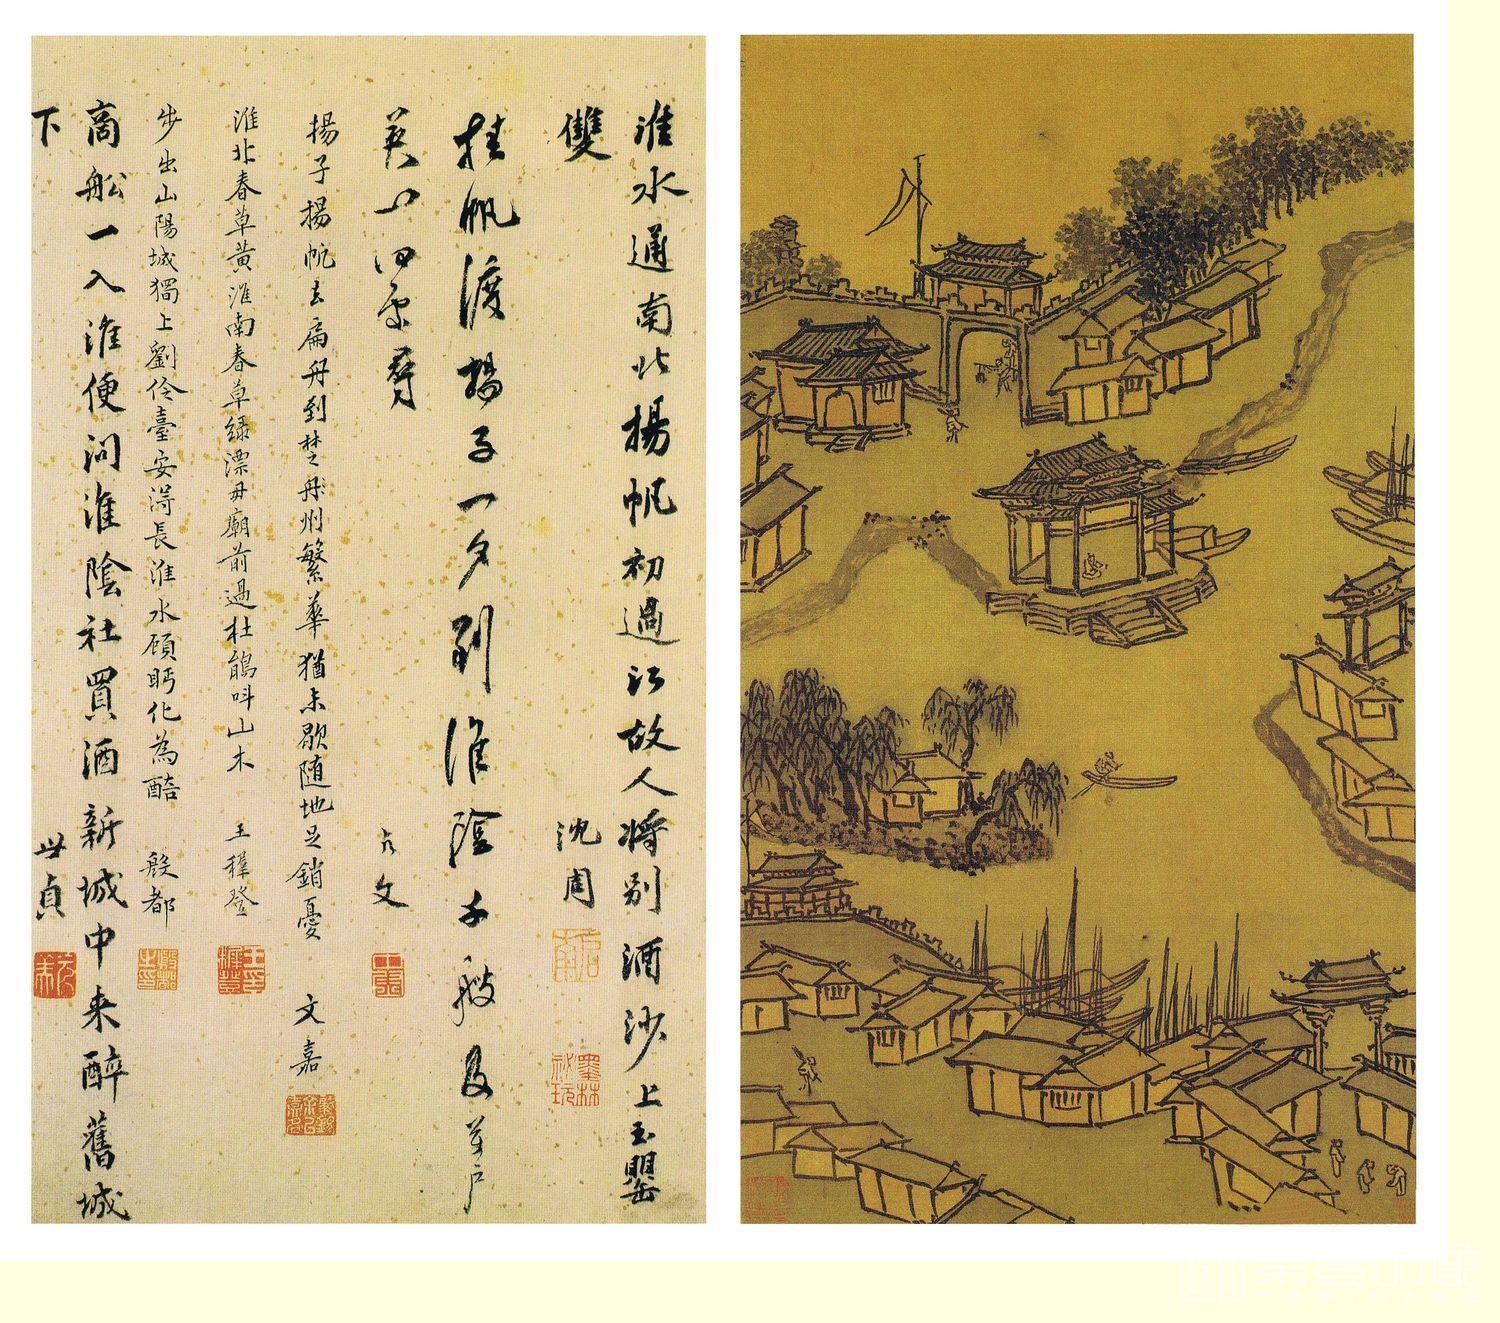 淮水通南北揚帆初過江故人将别酒沙上玉罌
雙 沈周
石田
墨林秘玩
挂帆渡揚子一夕到淮陰千艘及萬户
揚子揚帆去扁舟到楚州繁華猶未歇随地足銷憂 文嘉
淮北春草黄淮南春草緑漂毋廟前過杜鵑呌山木 王穉登
步出山陽城獨上劉伶臺安淂長淮水顧眄化為醅 殷都
殷都之印
商船一入淮便问淮陰社買酒新城中来醉舊城
下 世貞
元美